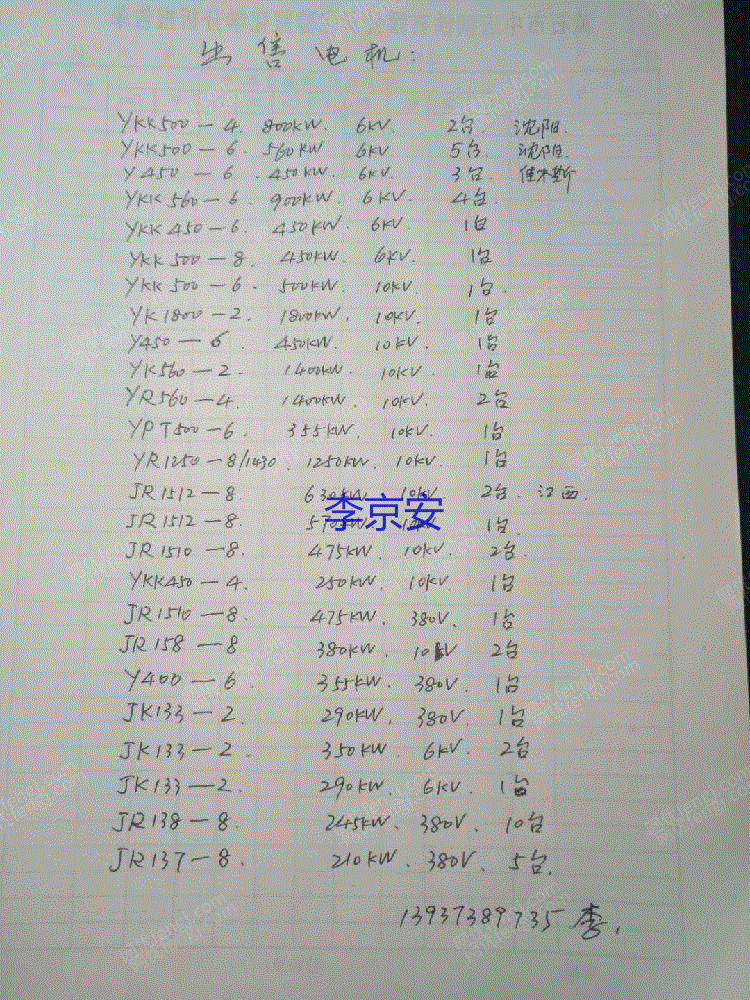 出售电机:
YKK500-4. 800KW. 6KV. 2台. 沈阳.
YKK500-6. 560KW 6KV. 5台. 沈阳.
Y450-6. 450KW. 6KV. 3台. 佳木斯
YKK560-6. 900KW. 6KV. 4台.
YKK450-6. 450KW. 6KV. 1台
YKK500-8. 450KW. 6KV. 1台
YKK500-6. 500KW. 10KV. 1台.
YK1800-2. 1800KW. 10KV. 1台
Y450-6 450KW. 10KV. 1台
YK560-2. 1400KW. 10KV. 1台
YR560-4. 1400KW. 10KV. 2台
YPT500-6. 355KW. 10KV. 1台
YR1250-8/1430. 1250KW. 10KV. 1台
JR1512-8. 630KW. 10KV 2台. 江西.
李京安
JR1512-8. 570KW. 10KV 1台.
JR1510-8 475KW. 10KV. 2台.
YKK450-4. 250KW. 10KV. 1台
JR1510-8. 475KW. 380V. 1台
JR158-8 380KW. 10KV 2台
Y400-6. 355KW. 380V. 1台
JK133-2. 290KW. 380V. 1台
JK133-2. 350KW. 6KV. 2台
JK133-2. 290KW. 6KV. 1台
JR138-8. 245KW、 380V、 10台
JR137-8. 210KW、 380V、 5台.
13937389735 李.